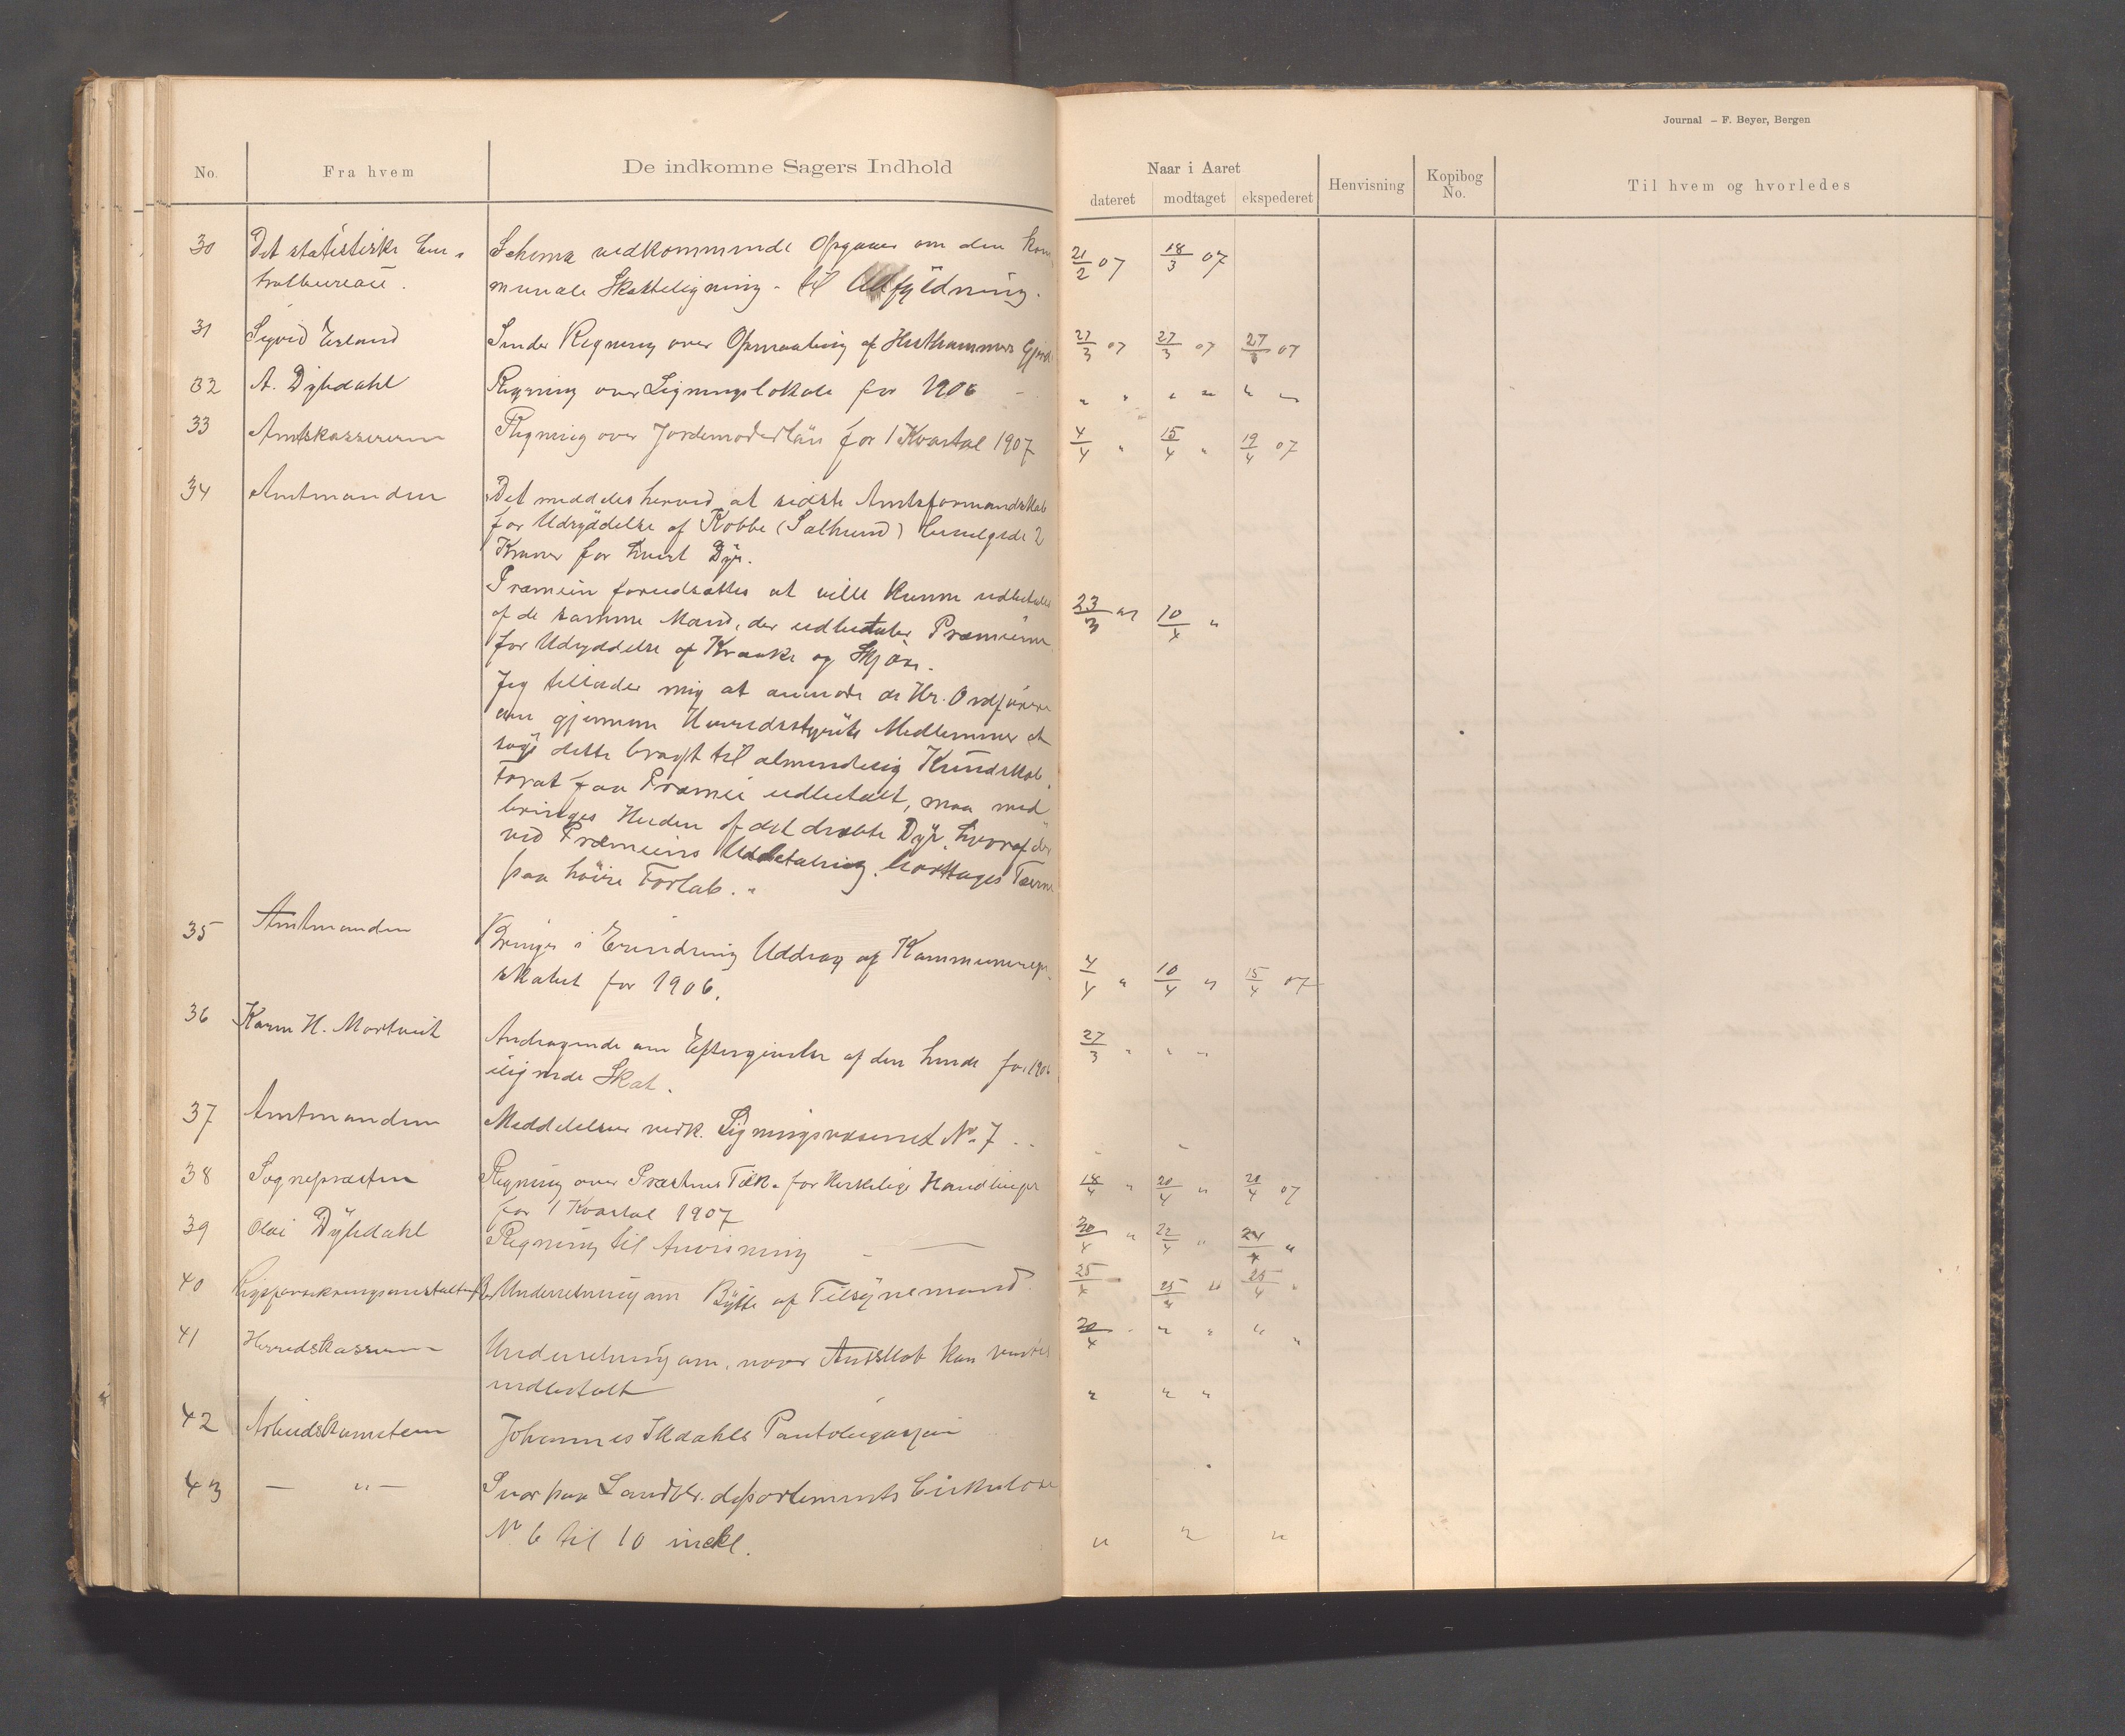 Journal – F. Beyer, Bergen
No. Fra hvem De indkomne Sagers Indhold Naar i Aaret dateret modtaget ekspederet Henvisning Kopibog No. Til hvem og hvorledes
30 Det statistiske Cen- Schema vedkommende Opgaver om den kom- 21/2 07 18/3 07
tralbureau. munale Skatteligning - til Udfyldning.
31 Sigvid Sender Regning over Opmaaling af 27/3 07 27/3 07 27/3 07
32 A. Dybdahl Regning over Ligningslokale for 1906 - " " " " " "
33 Amtskassereren Regning over Jordemoderlön for 1 Kvartal 1907 4/4 " 15/4 " 19/4 07
34 Amtmanden Det meddeles herved at sidste Amtsformandskab
for Udryddelse af Kobbe (Sælhund) bevilgede 2
Kroner for hvert Dyr.
Præmien forudsættes at ville kunne udbetales 23/3 07 10/4 "
af de samme Mænd, der udbetaler Præmierne
for Udryddelse af Kraake og Skjöre.
Jeg tillader mig at anmode de Hr. Ordförere
om gjennem Herredsstyrets Medlemmer at
søge dette bragt til almindelig Kundskab.
For at faa Præmie udbetalt, maa med
bringes Huden af det dræbte Dyr, hvoraf der
ved Præmiens Udbetaling borttages Tæerne
paa høire Forlab. "
35 Amtmanden Bringer i Erindring Uddrag af Kommuneregn- 4/4 " 10/4 " 15/4 07
skabet for 1906.
36 Karen H. Mortveit Andragende om Eftergivelse af den hende for 1906 27/3 " " "
ilignede Skat.
37 Amtmanden Meddelelser vedk. Ligningsvæsenet No 7 - - " "
38 Sognepræsten Regning over Præstens Tilk. for kirkelige Handlinger 18/4 " 20/4 " 20/4 07
for 1 Kvartal 1907
39 Olai Dybdahl Regning til Anvisning - — 20/4 " 22/4 " 24/4 "
40 Rigsforsikringsanstalten Underretning om Bytte af Tilsynsmand. 25/4 - 25/4 " 25/4 "
41 Herredskassereren Underretning om, naar Amtskat kan ventes 20/4 " " " " "
indbetalt " " "
42 Johannes Ikdahls Pantobligasjon
43 — " — Svar paa Landbr. departements Cirkulære
No 6 til 10 inckl. " " "